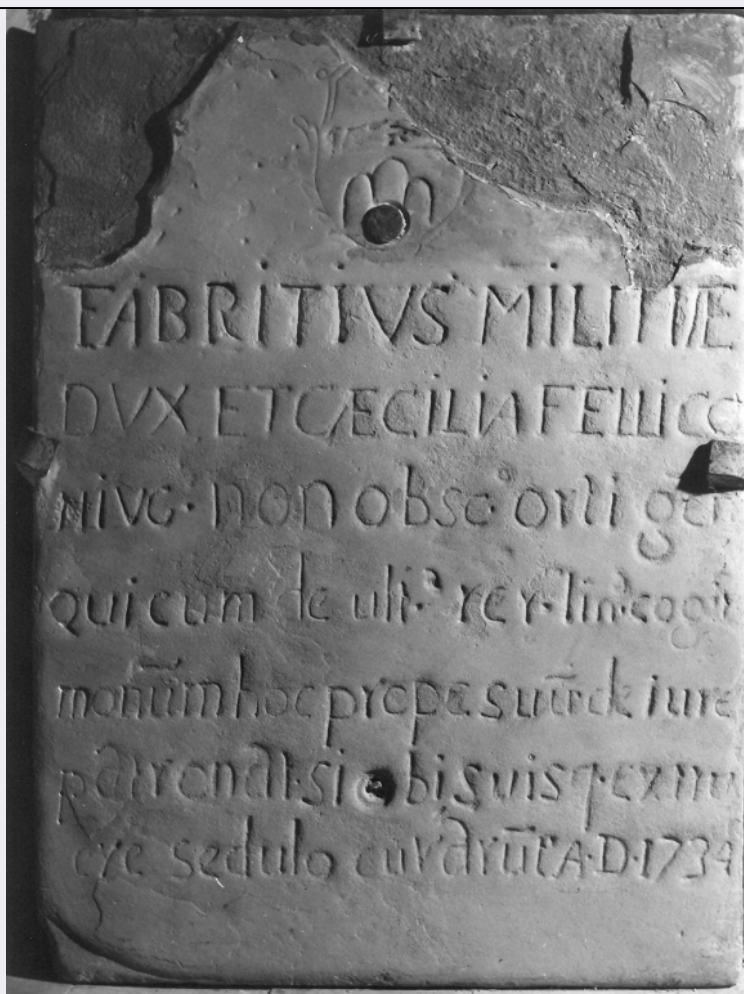 FABRITIVS MILITIÆ
DVX ET CÆCILIA FELLICCO
NIVG· non obsc° orti gen
qui cum de ult.° rer· lin· cogn
monūm hoc prope suūr de iure
patronat· sibi suisq· ex mu
ere sedulo curarūt A·D·1734